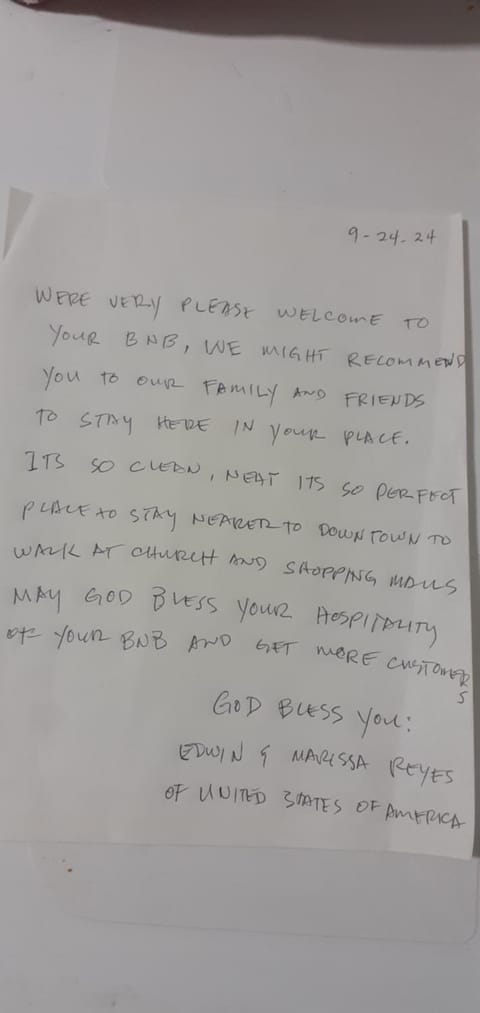 9-24-24
WERE VERY PLEASE WELCOME TO
YOUR BNB, WE MIGHT RECOMMEND
YOU TO OUR FAMILY AND FRIENDS
TO STAY HERE IN YOUR PLACE.
ITS SO CLEAN, NEAT ITS SO PERFECT
PLACE TO STAY NEARER TO DOWNTOWN TO
WALK AT CHURCH AND SHOPPING MALLS
MAY GOD BLESS YOUR HOSPITALITY
OF YOUR BNB AND GET MORE CUSTOMERS
GOD BLESS YOU:
EDWIN & MARISSA REYES
OF UNITED STATES OF AMERICA